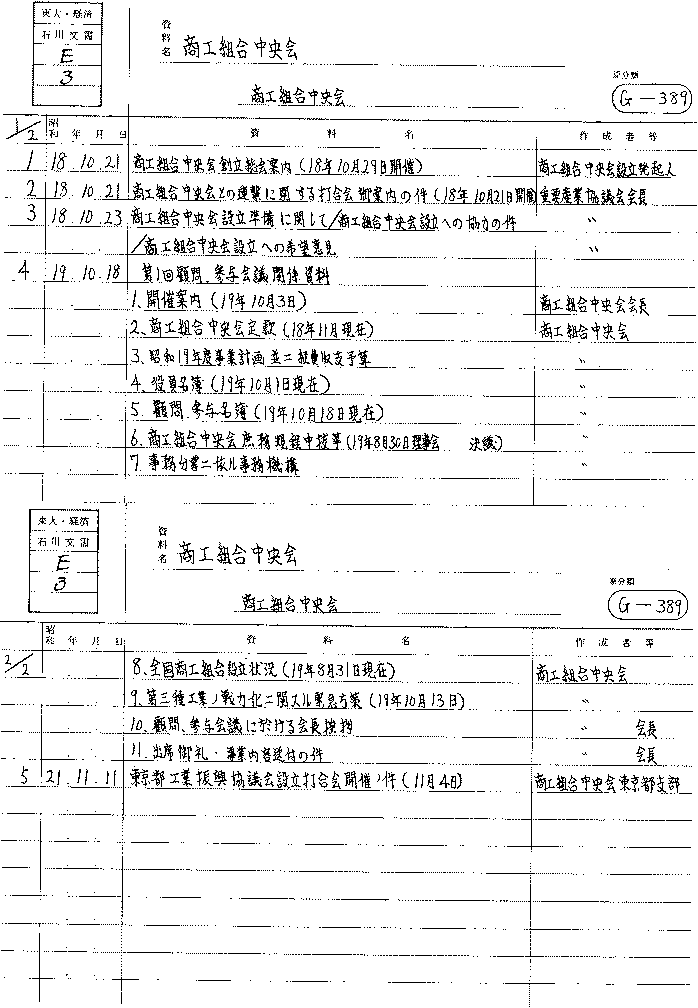 東大・経済
石川文書
E
3
資料名 商工組合中央会
商工組合中央会
原分類
G-389
1/2 昭和 年 月 日 資 料 名 作 成 者 等
1 18.10.21 商工組合中央会創立総会案内(18年10月29日開催) 商工組合中央会設立発起人
2 18.10.21 商工組合中央会との連繋に関する打合会御案内の件(18年10月21日開催) 重要産業協議会会長
3 18.10.23 商工組合中央会設立準備に関して/商工組合中央会設立への協力の件 〃
/商工組合中央会設立への希望意見 〃
4 19.10.18 第1回顧問、参与会議関係資料
1. 開催案内(19年10月3日) 商工組合中央会会長
2. 商工組合中央会定款(18年11月現在) 商工組合中央会
3. 昭和19年度事業計画並ニ経費収支予算 〃
4. 役員名簿(19年10月1日現在) 〃
5. 顧問、参与名簿(19年10月18日現在) 〃
6. 商工組合中央会庶務規程中抜萃(19年8月30日理事会 決議) 〃
7. 事務分掌ニ依ル事務機構 〃
東大・経済
石川文書
E
3
資料名 商工組合中央会
商工組合中央会
原分類
G-389
昭和 年 月 日 資 料 名 作 成 者 等
2/2 8. 全国商工組合設立状況(19年8月31日現在) 商工組合中央会
9. 第三種工業ノ戦力化ニ関スル緊急方策(19年10月13日) 〃
10. 顧問、参与会議に於ける会長挨拶 〃 会長
11. 出席御礼・事業内容送付の件 〃 会長
5 21.11.11 東京都工業振興協議会設立打合会開催ノ件(11月4日) 商工組合中央会東京都支部